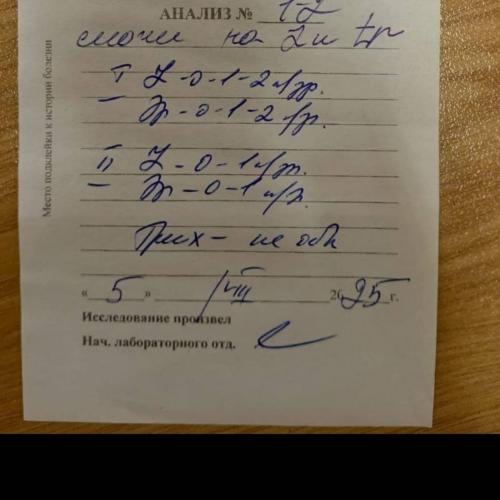 АНАЛИЗ № 1-2
мочи на L и tr
I L - 0 - 1 - 2
- Эр - 0 - 1 - 2
II L - 0 - 1
- Эр - 0 - 1
Трих - не обн
« 5 » VIII 2025 г.
Исследование произвел
Нач. лабораторного отд.
Место подклейки к истории болезни